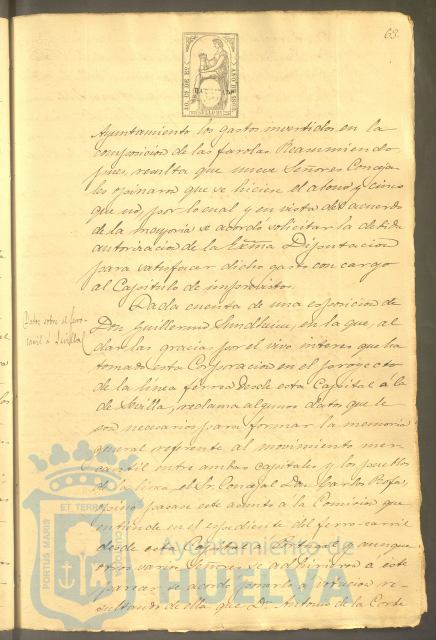 63.
Ayuntamiento los gastos invertidos en la
composicion de las farolas. Reasumiendo
pues, resulta que nueve Señores Conceja-
les opinaron que se hiciese el abono y cinco
que no, por lo cual y en vista del acuerdo
de la mayoria se acordo solicitar la debida
autorizacion de la Exma Diputacion
para satisfacer dicho gasto con cargo
al Capitulo de imprevistos.
Dada cuenta de una esposicion de
Datos sobre el ferro-
carril a Sevilla
Don Guillermo Sundheim, en la que, al
dar las gracias por el vivo interes que ha
tomado esta Corporacion en el proyecto
de la linea ferrea desde esta Capital á la
de Sevilla, reclama algunos datos que le
son necesarios para formar la memoria
general referente al movimiento mer-
cantil entre ambas capitales y los pueblos
de la linea, el Sr. Concejal Don Carlos
opino pasase este asunto á la Comision que
entiende en el espediente del ferro-carril
desde esta Capital á aunque
otros varios Señores se adhirieron á este
parecer se acordo ponerlo á votacion re-
sultando de ella que Dn Antonio de la Corte
PORTUS MARIS ET TERRAE CUSTODIA
Ayuntamiento de
HUELVA